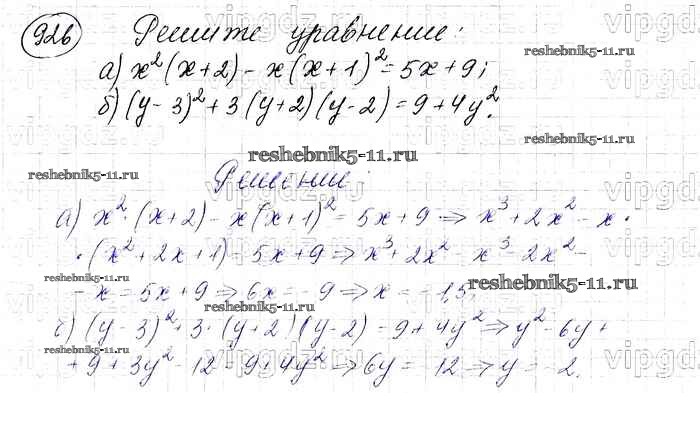 926 Решите уравнение:
а) x²(x+2) - x(x+1)² = 5x+9;
б) (y-3)² + 3(y+2)(y-2) = 9+4y².
reshebnik5-11.ru
reshebnik5-11.ru
reshebnik5-11.ru
Решение:
а) x²·(x+2) - x(x+1)² = 5x+9 ⇒ x³+2x² - x·
·(x²+2x+1) = 5x+9 ⇒ x³+2x² - x³ - 2x² -
- x = 5x+9 ⇒ 6x = -9 ⇒ x = -1,5;
reshebnik5-11.ru
reshebnik5-11.ru
б) (y-3)² + 3·(y+2)(y-2) = 9+4y² ⇒ y² - 6y +
+ 9 + 3y² - 12 = 9+4y² ⇒ 6y = -12 ⇒ y = -2.
reshebnik5-11.ru
vipgdz.ru